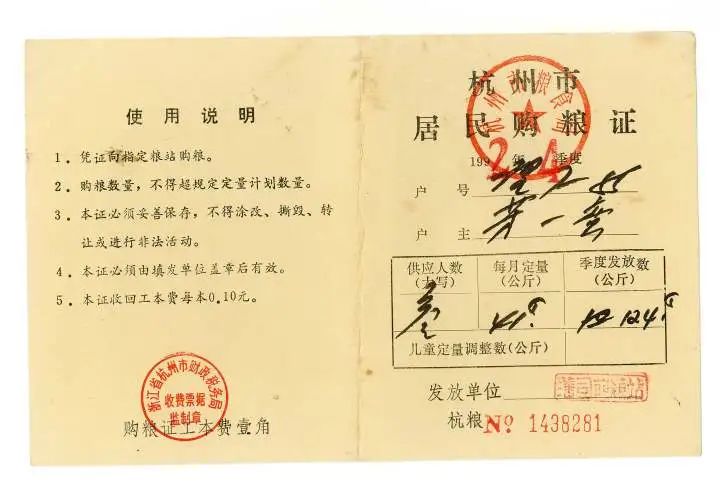 使用说明
1．凭证向指定粮站购粮。
2．购粮数量，不得超规定定量计划数量。
3．本证必须妥善保存，不得涂改、撕毁、转
让或进行非法活动。
4．本证必须由填发单位盖章后有效。
5．本证收回工本费每本0.10元。
浙江省杭州市财政税务局
收费票据
监制章
购粮证工本费壹角
杭州市
杭州市粮食局
居民购粮证
1992年4季度
户号
户主
供应人数
(大写)
每月定量
(公斤)
季度发放数
(公斤)
叁
儿童定量调整数(公斤)
发放单位
杭粮 № 1438281